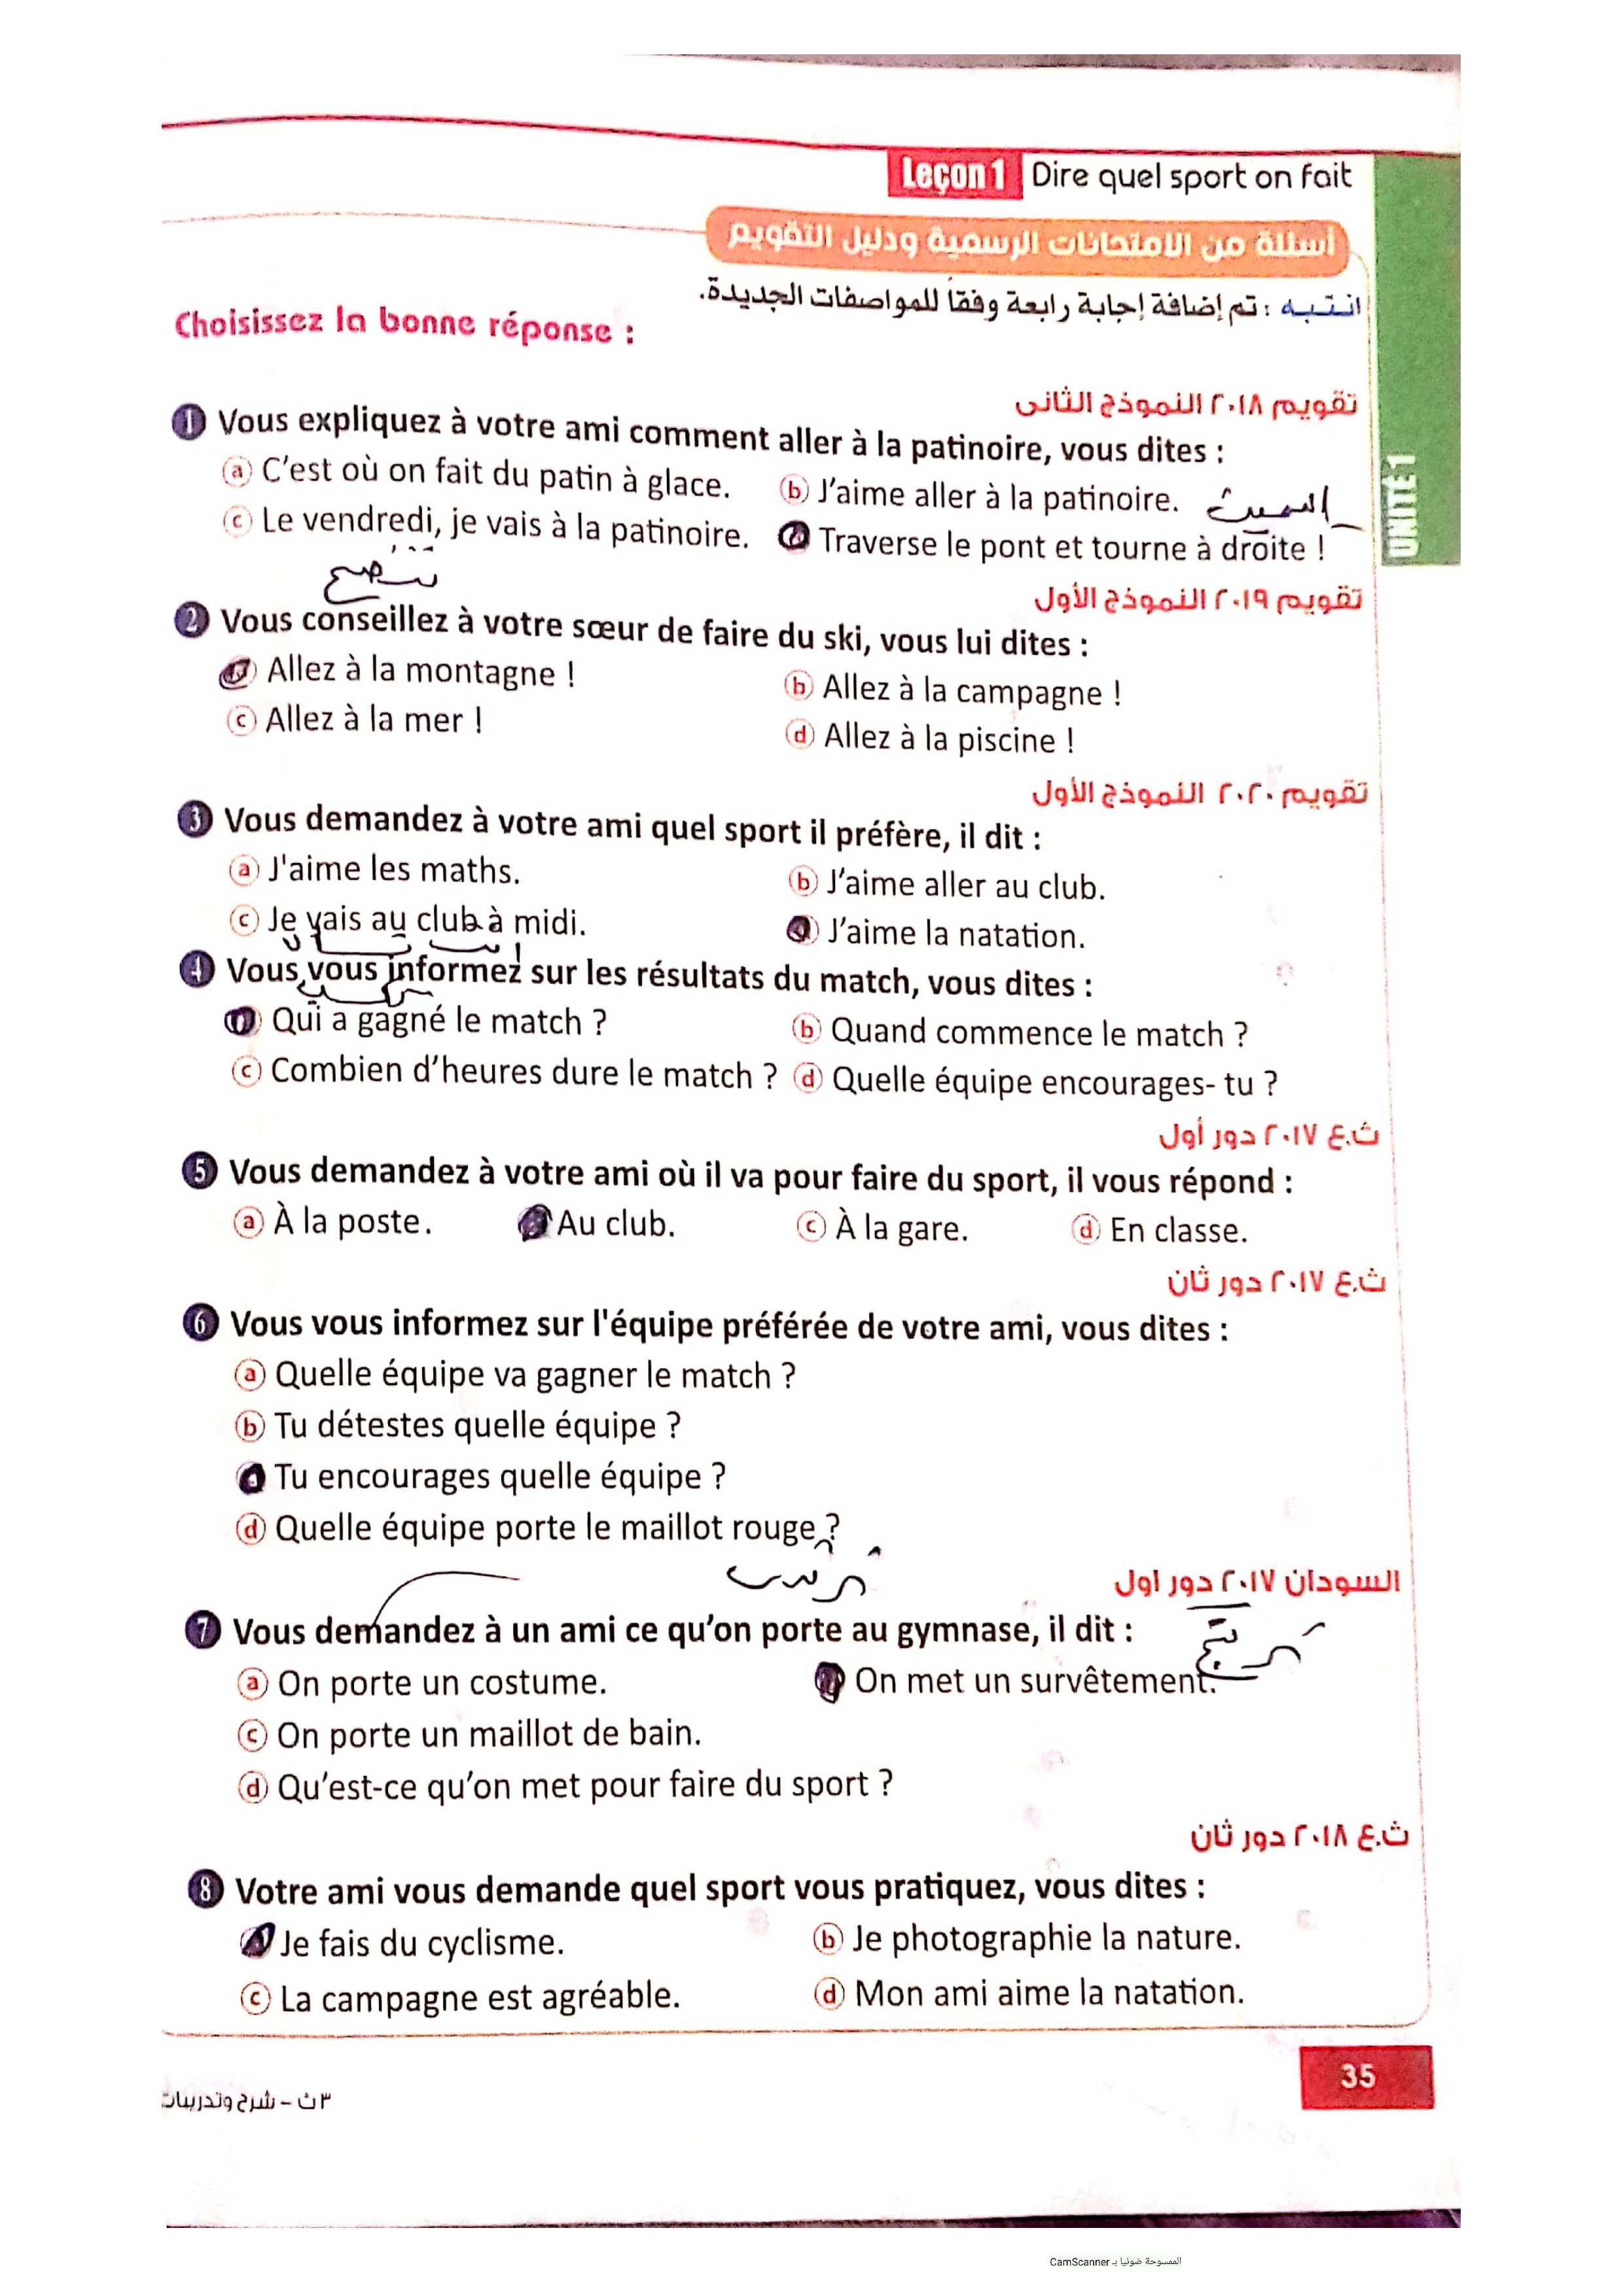 Leçon 1 Dire quel sport on fait
أسئلة من الامتحانات الرسمية ودليل التقويم
انتبه : تم إضافة إجابة رابعة وفقاً للمواصفات الجديدة.
Choisissez la bonne réponse :
UNITÉ 1
تقويم ٢٠١٨ النموذج الثانى
1 Vous expliquez à votre ami comment aller à la patinoire, vous dites :
a C'est où on fait du patin à glace. b J'aime aller à la patinoire.
c Le vendredi, je vais à la patinoire. d Traverse le pont et tourne à droite !
تقويم ٢٠١٩ النموذج الأول
2 Vous conseillez à votre sœur de faire du ski, vous lui dites :
a Allez à la montagne ! b Allez à la campagne !
c Allez à la mer ! d Allez à la piscine !
تقويم ٢٠٢٠ النموذج الأول
3 Vous demandez à votre ami quel sport il préfère, il dit :
a J'aime les maths. b J'aime aller au club.
c Je vais au club à midi. d J'aime la natation.
4 Vous vous informez sur les résultats du match, vous dites :
a Qui a gagné le match ? b Quand commence le match ?
c Combien d'heures dure le match ? d Quelle équipe encourages- tu ?
ث.ع ٢٠١٧ دور أول
5 Vous demandez à votre ami où il va pour faire du sport, il vous répond :
a À la poste. b Au club. c À la gare. d En classe.
ث.ع ٢٠١٧ دور ثان
6 Vous vous informez sur l'équipe préférée de votre ami, vous dites :
a Quelle équipe va gagner le match ?
b Tu détestes quelle équipe ?
c Tu encourages quelle équipe ?
d Quelle équipe porte le maillot rouge ?
السودان ٢٠١٧ دور اول
7 Vous demandez à un ami ce qu'on porte au gymnase, il dit :
a On porte un costume. b On met un survêtement.
c On porte un maillot de bain.
d Qu'est-ce qu'on met pour faire du sport ?
ث.ع ٢٠١٨ دور ثان
8 Votre ami vous demande quel sport vous pratiquez, vous dites :
a Je fais du cyclisme. b Je photographie la nature.
c La campagne est agréable. d Mon ami aime la natation.
35
٣ث – شرح وتدريبات
الممسوحة ضوئيا بـ CamScanner